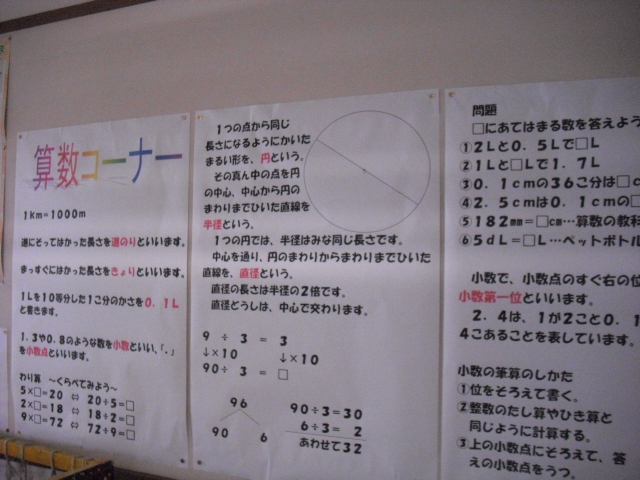 算数コーナー
1km＝1000m
道にそってはかった長さを道のりといいます。
まっすぐにはかった長さをきょりといいます。
1Lを10等分した1こ分のかさを0.1L
と書きます。
1.3や0.8のような数を小数といい、「.」
を小数点といいます。
わり算　～くらべてみよう～
5×□＝20 ⇔ 20÷5＝□
2×□＝18 ⇔ 18÷2＝□
9×□＝72 ⇔ 72÷9＝□
1つの点から同じ
長さになるようにかいた
まるい形を、円という。
その真ん中の点を円
の中心、中心から円の
まわりまでひいた直線を
半径という。
1つの円では、半径はみな同じ長さです。
中心を通り、円のまわりからまわりまでひいた
直線を、直径という。
直径の長さは半径の2倍です。
直径どうしは、中心で交わります。
9 ÷ 3 ＝ 3
↓×10 ↓×10
90÷ 3 ＝ □
96
90 6
90÷3＝30
6÷3＝ 2
あわせて32
問題
□にあてはまる数を答えよう
①2Lと0.5Lで□L
②1Lと□Lで1.7L
③0.1cmの36こ分は□c
④2.5cmは0.1cmの□
⑤182mm＝□cm…算数の教科
⑥5dL＝□L…ペットボトル
小数で、小数点のすぐ右の位
小数第一位といいます。
2.4は、1が2ことと0.1
4こあることを表しています。
小数の筆算のしかた
①位をそろえて書く。
②整数のたし算やひき算と
同じように計算する。
③上の小数点にそろえて、答
えの小数点をうつ。